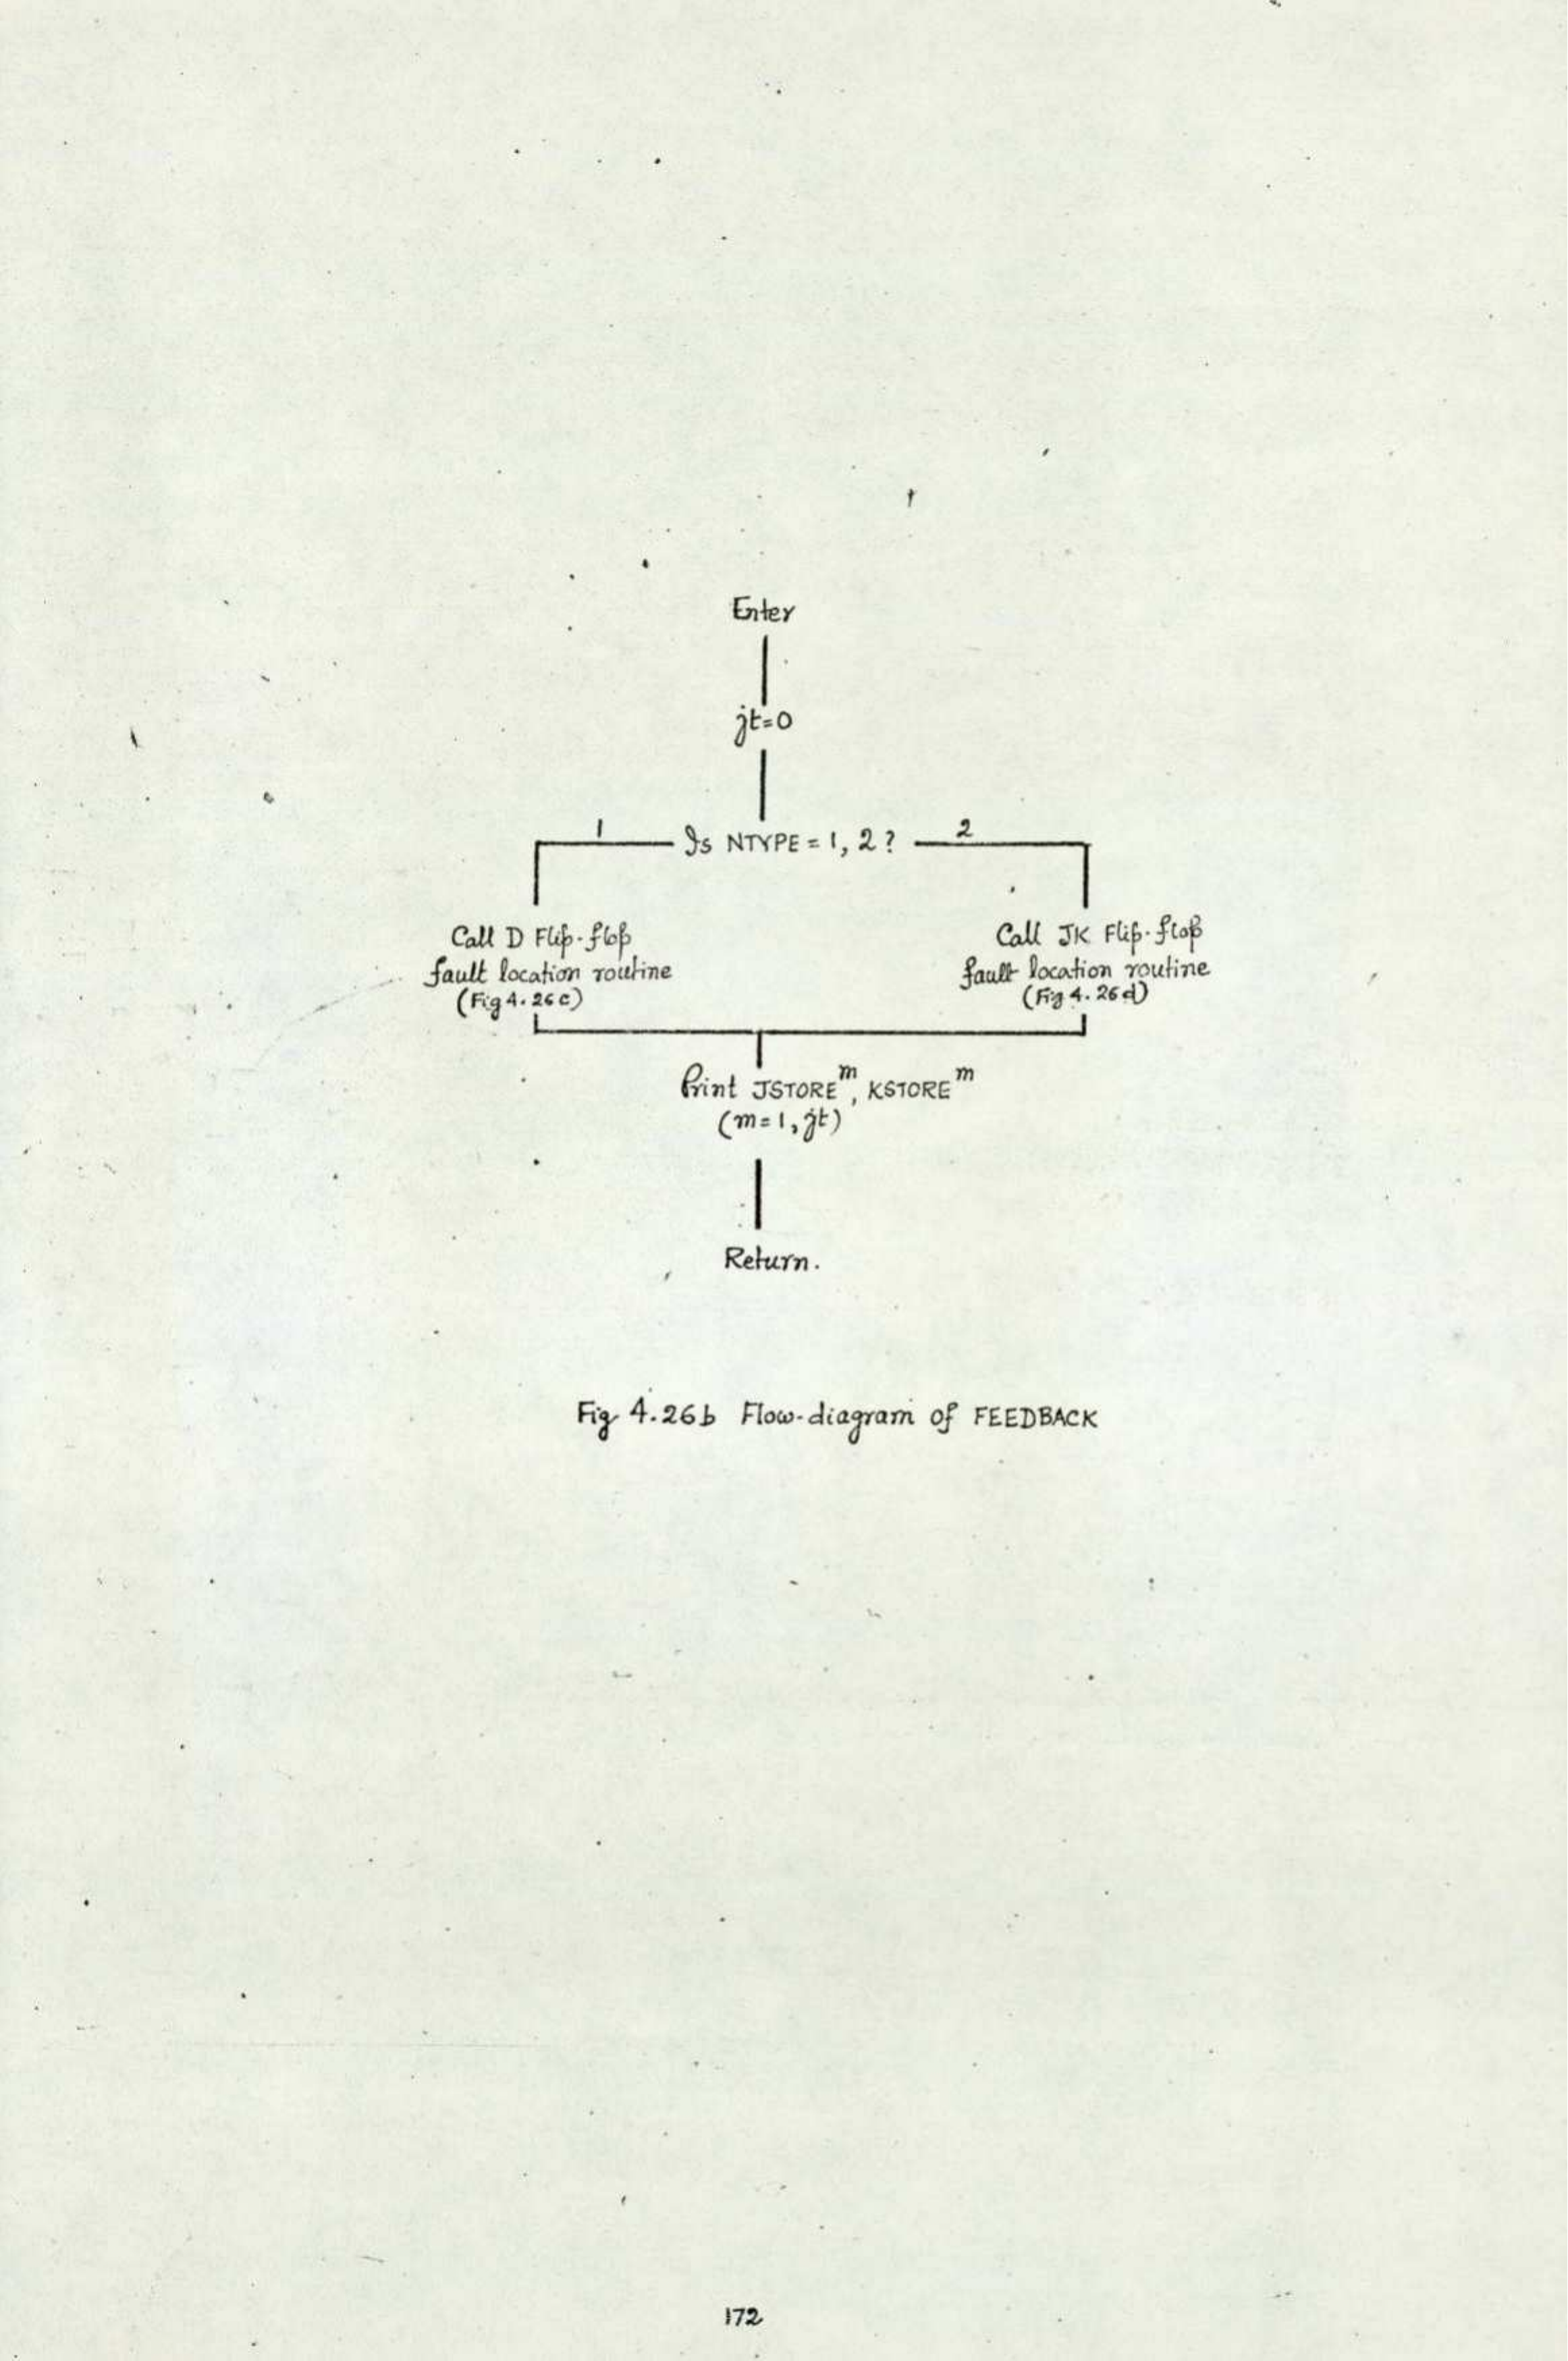 Enter
jt=0
1
Is NTYPE = 1, 2 ?
2
Call D Flip-flop
fault location routine
(Fig 4.26c)
Call JK Flip-flop
fault location routine
(Fig 4.26d)
Print JSTORE^m, KSTORE^m
(m=1, jt)
Return.
Fig 4.26b Flow-diagram of FEEDBACK
172